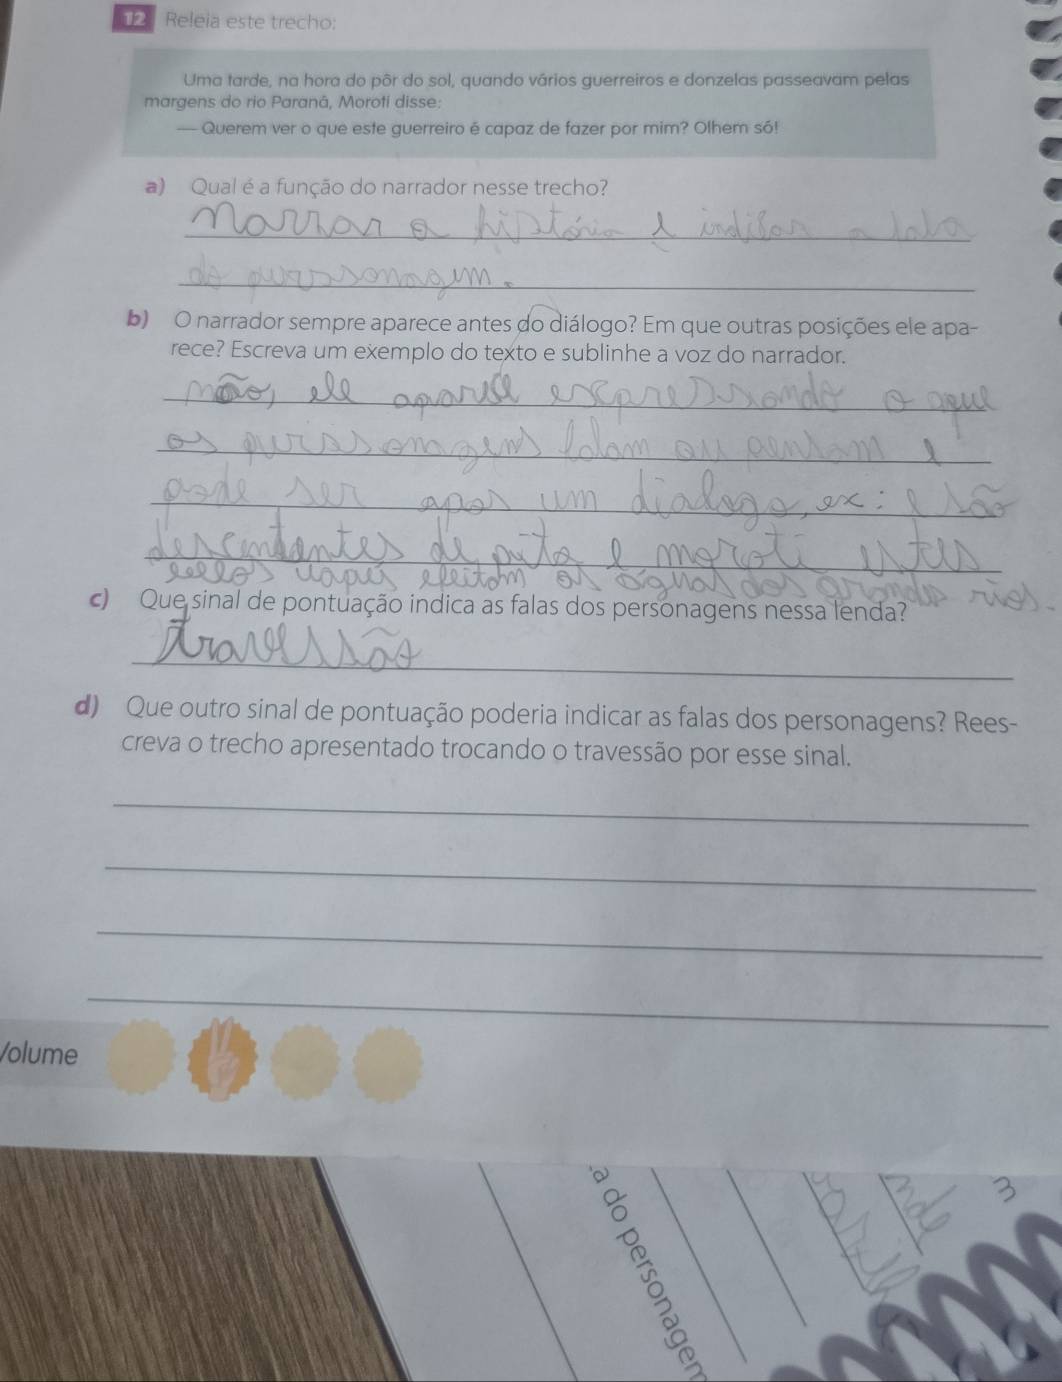 12 Releia este trecho:
Uma tarde, na hora do pôr do sol, quando vários guerreiros e donzelas passeavam pelas
margens do rio Paraná, Moroti disse:
— Querem ver o que este guerreiro é capaz de fazer por mim? Olhem só!
a) Qual é a função do narrador nesse trecho?
Narrar a história e indicar a fala
do personagem.
b) O narrador sempre aparece antes do diálogo? Em que outras posições ele apa-
rece? Escreva um exemplo do texto e sublinhe a voz do narrador.
não, ele aparece expressando o aque
os personagens falam ou pensam e
pode ser apos um dialogo, ex: e são
descendentes de pita e moroti estes
belos uapés efeitam as águas dos grandes rios.
c) Que sinal de pontuação indica as falas dos personagens nessa lenda?
travessão
d) Que outro sinal de pontuação poderia indicar as falas dos personagens? Rees-
creva o trecho apresentado trocando o travessão por esse sinal.
Volume
a do personagem